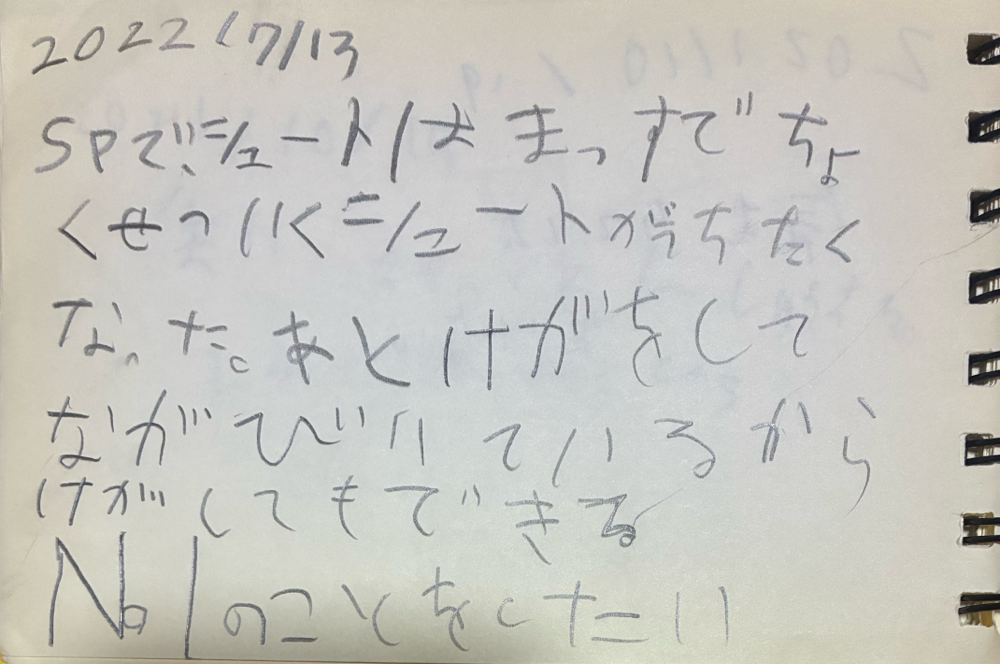 2022/7/13
SPで、シュートはまっすぐちょ
くせついくシュートがうちたく
なった。あとけがをして
ながびいているから
けがしてもできる
No1のことをしたい